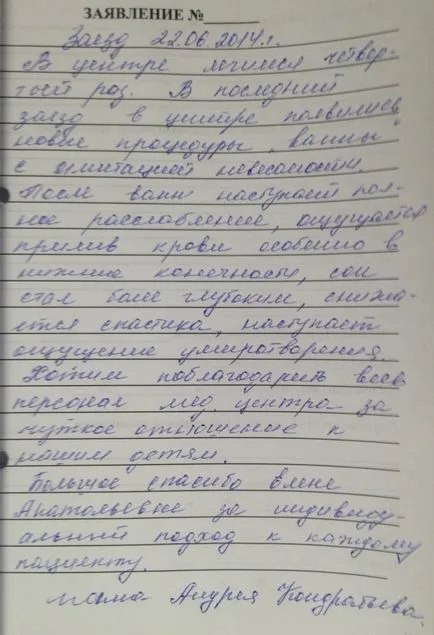 ЗАЯВЛЕНИЕ №
Заезд 22.06.2014г.
В центре лечимся четвер-
тый раз. В последний
заезд в центре появились
новые процедуры „ванны"
с имитацией невесомости.
После ванн наступает пол-
ное расслабление, ощущается
прилив крови особенно в
нижние конечности, сон
стал более глубоким, снижа-
ется спастика, наступает
ощущение умиротворения.
Хотим поблагодарить весь
персонал мед. центра за
чуткое отношение к
нашим детям.
Большое спасибо Елене
Анатольевне за индивиду-
альный подход к каждому
пациенту.
мама Андрея Кондратьева